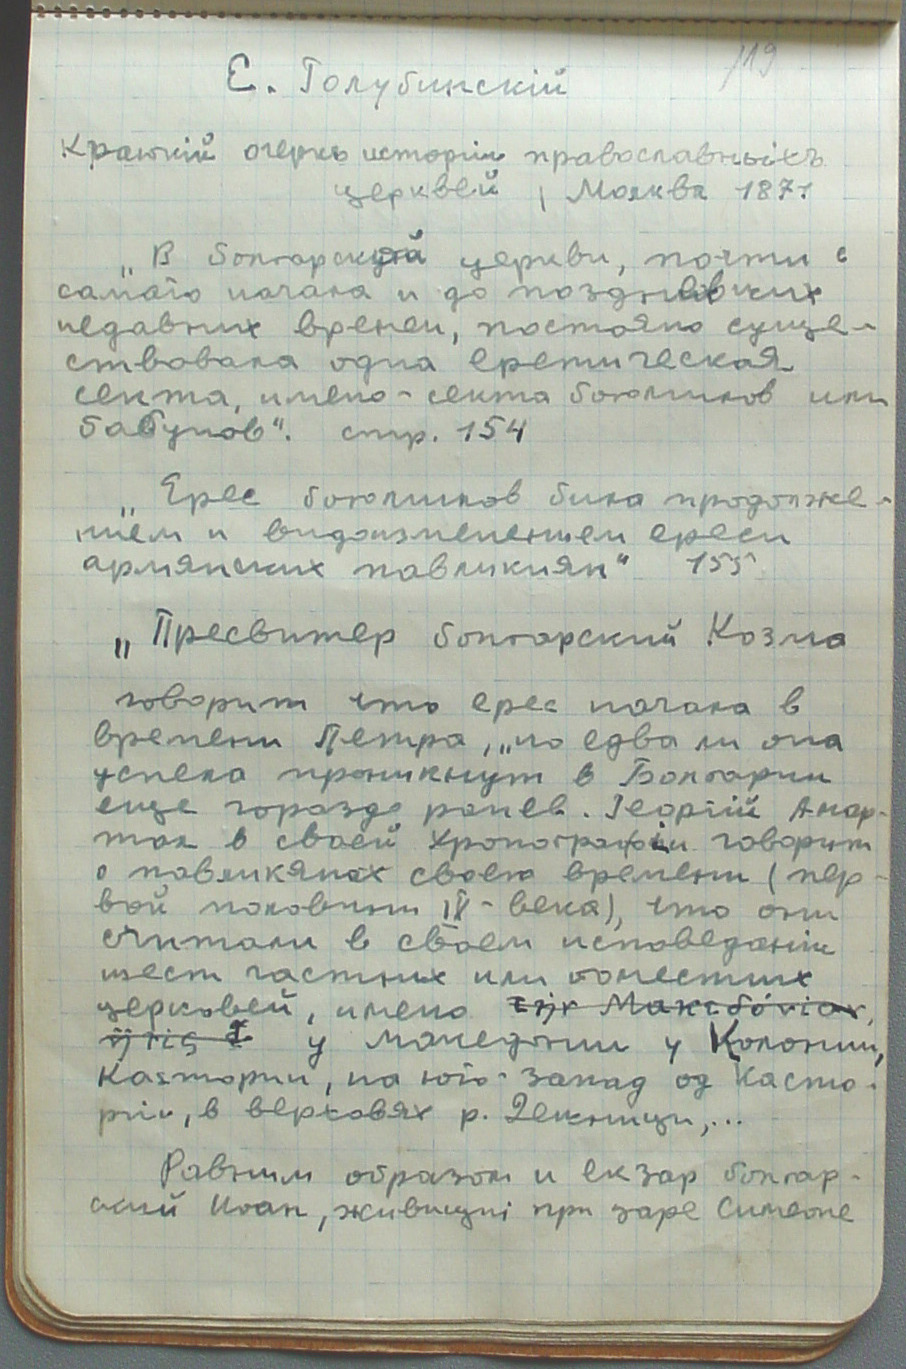 119
Е. Голубинскій
Краткій очеркъ исторіи православныхъ
церквей, Москва 1871
„В болгарской церкви, почти с
самаго начала и до поздн их
недавних времен, постояно суще-
ствовала одна еретическая
секта, имено - секта богомилов или
бабунов". стр. 154
„Ерес богомилов била продолже-
нием и видоизменением ереси
армянских павликиян" 155
„Пресвитер болгарский Козма
говорит что ерес начала в
времени Петра, „но едва ли она
успела проникнут в Болгарии
еще гораздо ранее. Георгій Амар-
тол в своей хронографіи говорит
о павликянах своего времени (пер-
вой половини IX - века), что они
считали в своем исповеданіи
шест частних или поместних
церковей, имено τὴν Μακεδόνιαν,
ἥτις у Македонии у Колонии,
Кастории, на юго-запад од Касто-
ріи, в верховях р. ...
Равним образом и екзар болгар-
ский Иоан, живущиі при заре Симеоне